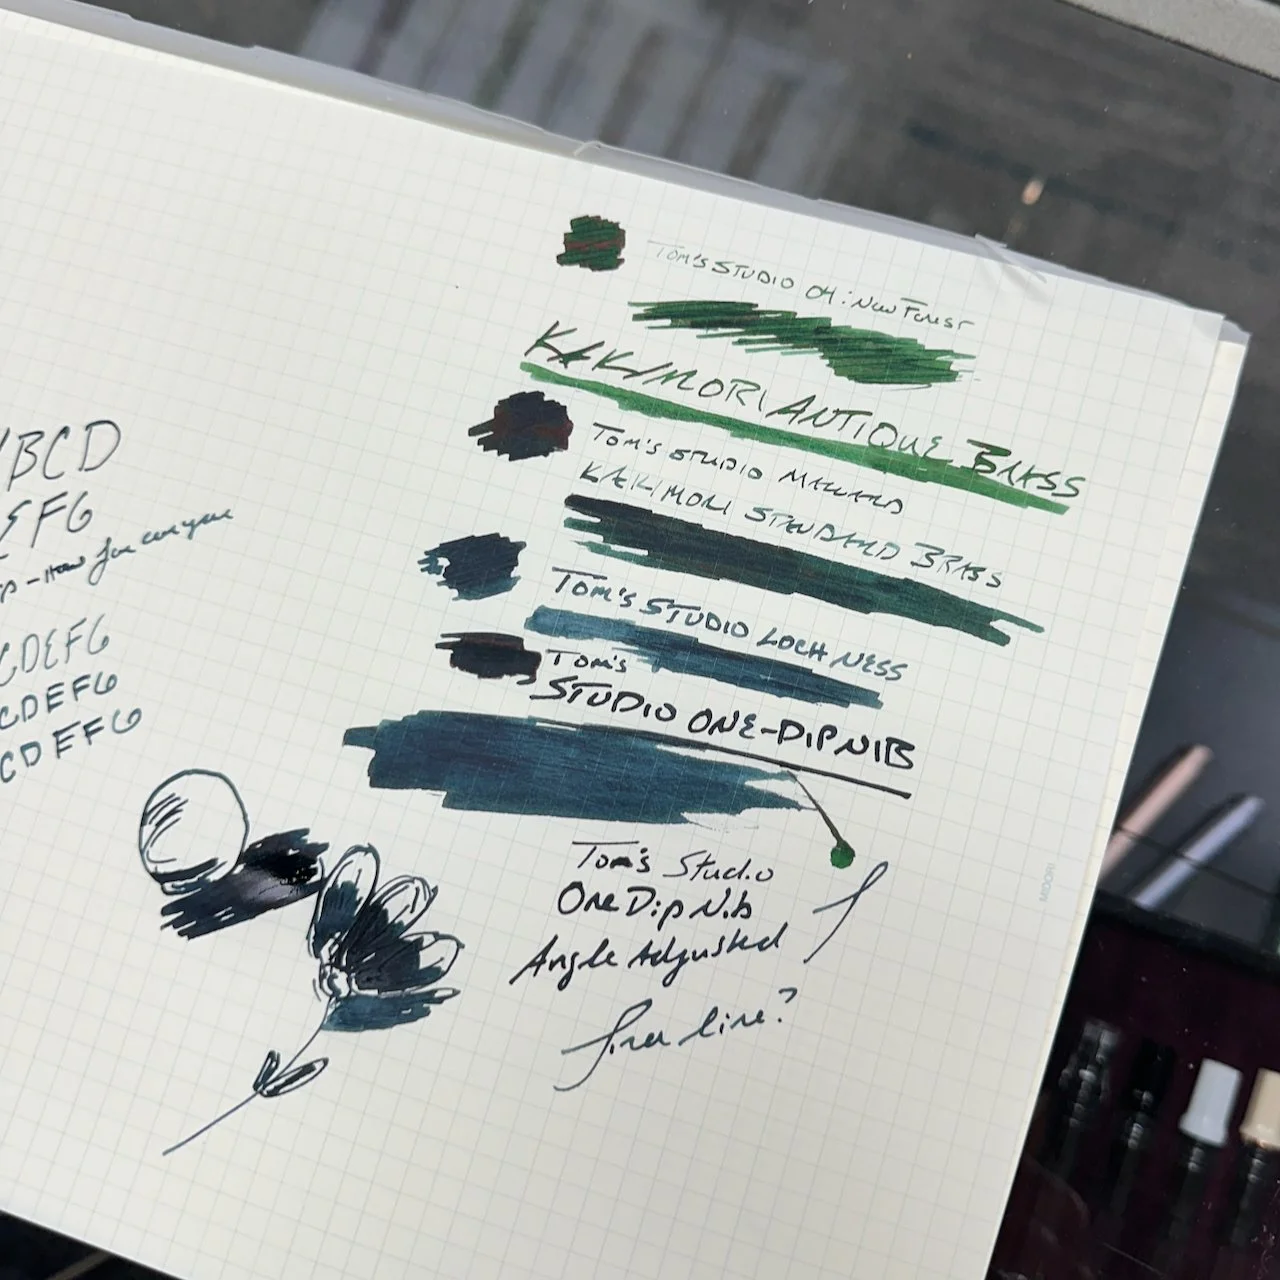 ABCD
EFG
CDEFG
CDEFG
CDEFG
Tom's Studio 04: New Forest
KAKIMORI ANTIQUE BRASS
Tom's Studio Mallard
KAKIMORI STANDARD BRASS
Tom's Studio Loch Ness
Tom's
STUDIO ONE-DIP NIB
Tom's Studio
One Dip Nib
Angle Adjusted
finer line?